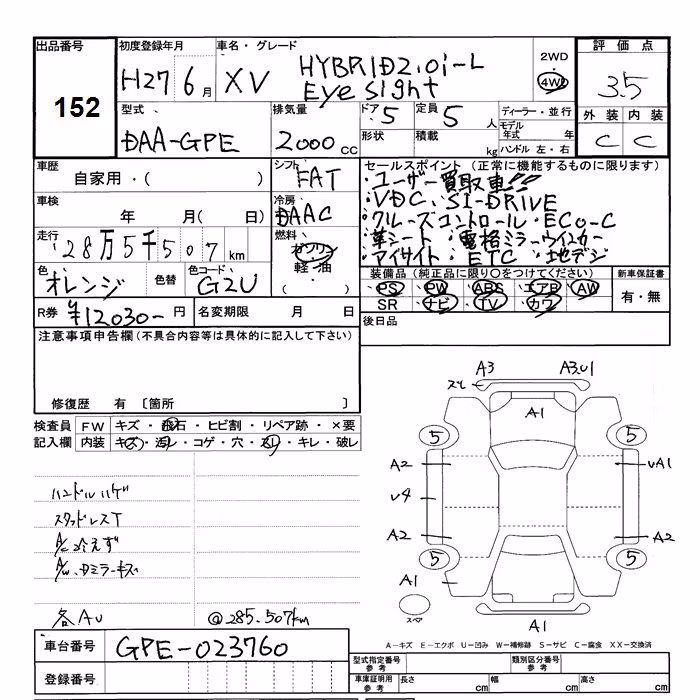 出品番号 初度登録年月 車名・グレード 2WD 評価点
152 H27 6月 XV HYBRID2.0i-L 4WD 3.5
Eye Sight
型式 排気量 ドア 定員 ディーラー・並行 外装 内装
DAA-GPE 2000cc 5 5人 モデル年式 年 C C
形状 積載 kg ハンドル 左・右
車歴 シフト セールスポイント(正常に機能するものに限ります)
自家用・( ) FAT ・ユーザー買取車!!
車検 冷房 ・VDC・SI-DRIVE
年 月(日) AAC ・クルーズコントロール・ECO-C
走行 燃料 ・革シート・電格ミラーウインカー
28万5千507km ガソリン ・アイサイト・ETC・地デジ
軽・油
( )
色 色替 色コード 装備品(純正品に限り○をつけてください) 新車保証書
オレンジ G2U PS PW ABS エアB AW 有・無
SR ナビ TV カワ
R券 ¥12030-円 名変期限 月 日 後日品
注意事項申告欄(不具合内容等は具体的に記入して下さい)
修復歴 有 〔箇所 〕
検査員 FW キズ・飛石・ヒビ割・リペア跡・×要
記入欄 内装 キズ・汚レ・コゲ・穴・スレ・キレ・破レ
ハンドルハゲ
スタッドレスT
A/C冷えず
A/W、ドミラーキズ
各AU @285.507km
スレ A3 A3.U1
A1
5 5
A2 UA1
U4
A2 A2
5 5
A1
スペア
A1
車台番号 GPE-023760
A-キズ E-エクボ U-凹み W-補修跡 S-サビ C-腐食 XX-交換済
登録番号
型式指定番号 参考 類別区分番号 参考
車庫証明用 参考 長さ cm 幅 cm 高さ cm